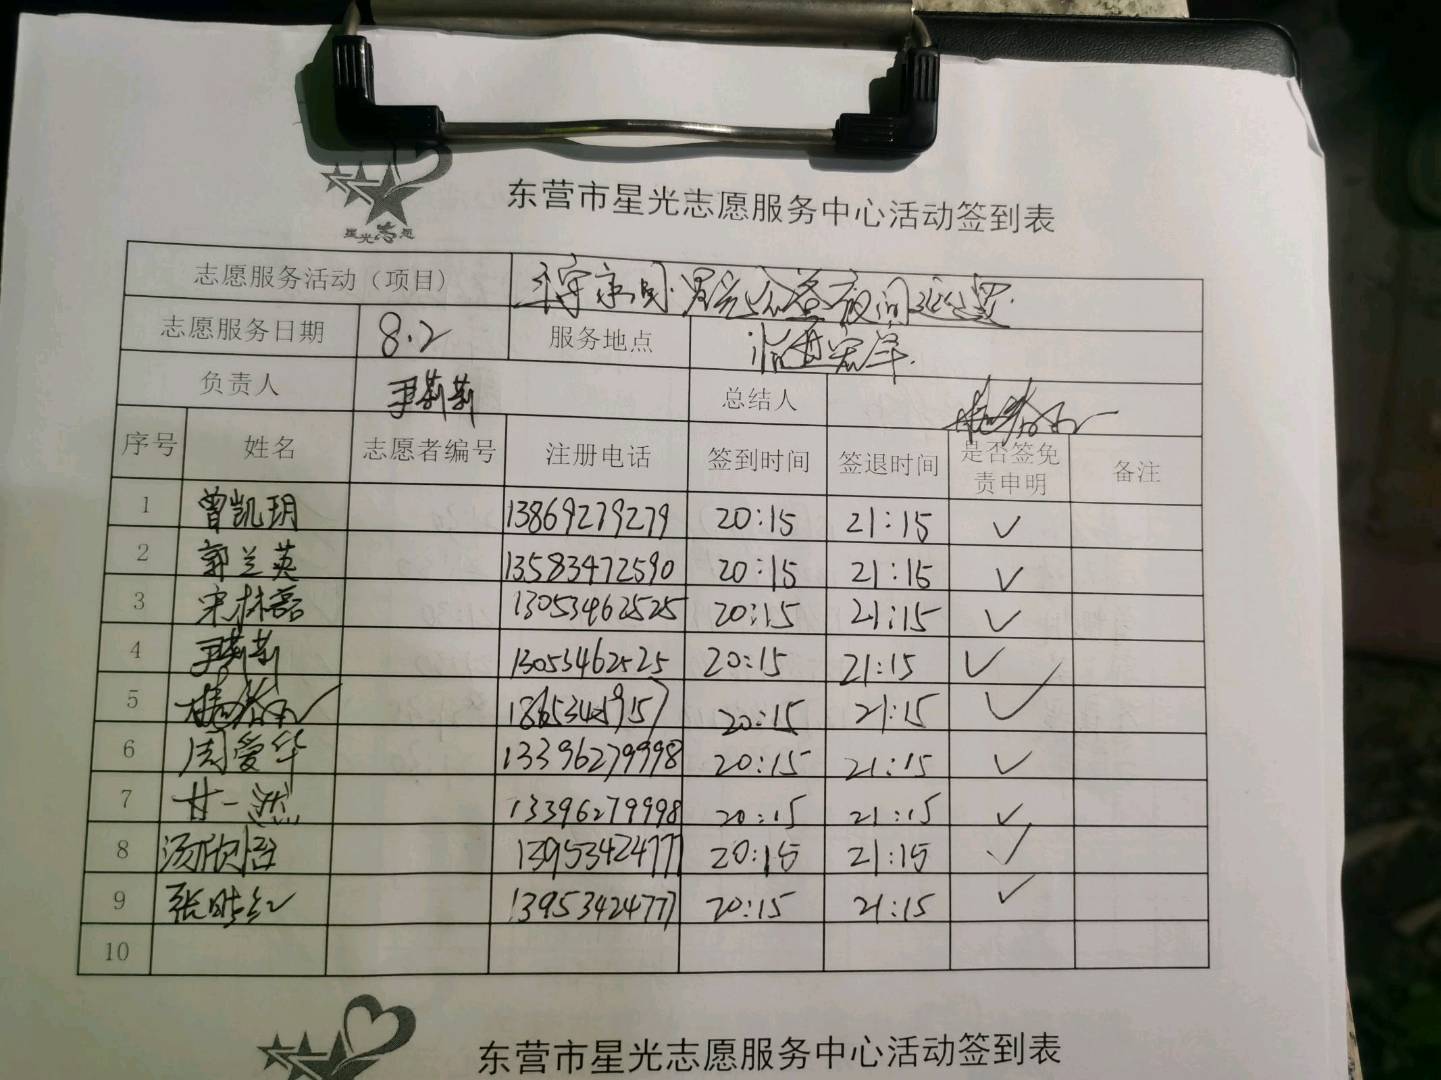 星光志愿
东营市星光志愿服务中心活动签到表
志愿服务活动（项目） 星光公益夜间巡逻
志愿服务日期 8.2 服务地点
负责人 尹莉莉 总结人
序号 姓名 志愿者编号 注册电话 签到时间 签退时间 是否签免责申明 备注
1 曾凯玥 13869279279 20:15 21:15 ✓
2 郭兰英 13583472590 20:15 21:15 ✓
3 宋林磊 13053462525 20:15 21:15 ✓
4 尹莉莉 13053462525 20:15 21:15 ✓
5 20:15 21:15 ✓
6 周爱华 13396279998 20:15 21:15 ✓
7 甘一 13396279998 20:15 21:15 ✓
8 汤欣怡 13953424777 20:15 21:15 ✓
9 张晓红 13953424777 20:15 21:15 ✓
10
东营市星光志愿服务中心活动签到表